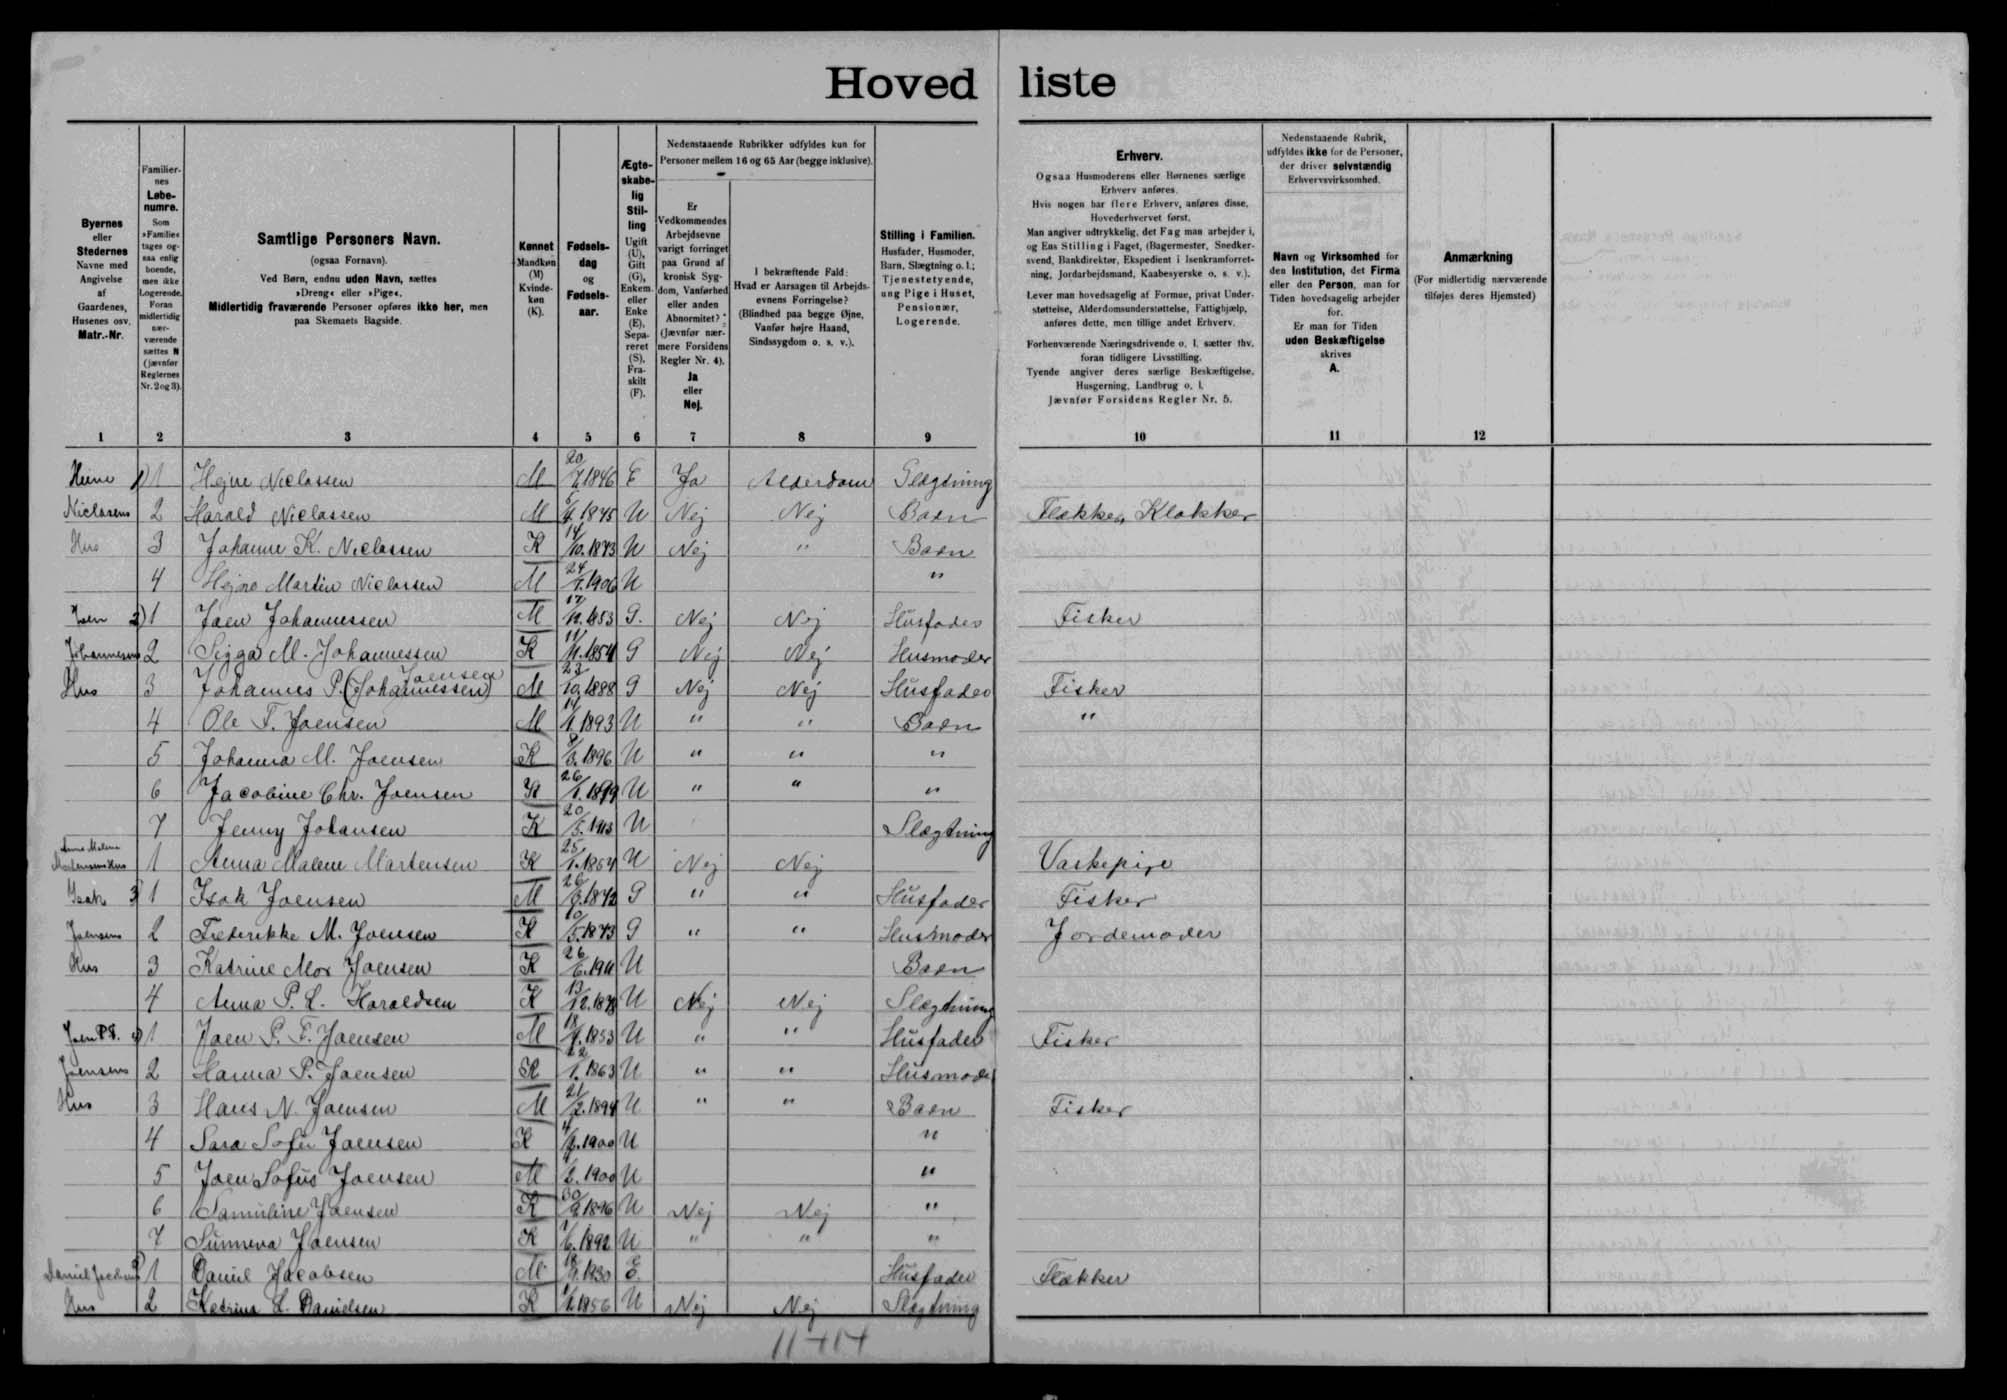 Hoved liste
Byernes eller Stedernes Navne med Angivelse af Gaardenes, Husenes osv. Matr.-Nr.
Familiernes Løbenumre. Som »Familie« tages ogsaa enlig boende, men ikke Logerende. Foran midlertidig nærværende sættes N (jævnfør Reglernes Nr. 2 og 3).
Samtlige Personers Navn.
(ogsaa Fornavn).
Ved Børn, endnu uden Navn, sættes
»Dreng« eller »Pige«.
Midlertidig fraværende Personer opføres ikke her, men
paa Skemaets Bagside.
Kønnet Mandkøn (M) Kvindekøn (K).
Fødselsdag og Fødselsaar.
Ægteskabelig Stilling Ugift (U), Gift (G), Enkem. eller Enke (E), Separeret (S), Fraskilt (F).
Nedenstaaende Rubrikker udfyldes kun for
Personer mellem 16 og 65 Aar (begge inklusive).
Er Vedkommendes Arbejdsevne varigt forringet paa Grund af kronisk Sygdom, Vanførhed eller anden Abnormitet? (Jævnfør nærmere Forsidens Regler Nr. 4). Ja eller Nej.
I bekræftende Fald: Hvad er Aarsagen til Arbejdsevnens Forringelse? (Blindhed paa begge Øjne, Vanfør højre Haand, Sindssygdom o. s. v.).
Stilling i Familien. Husfader, Husmoder, Barn, Slægtning o. l.; Tjenestetyende, ung Pige i Huset, Pensionær, Logerende.
Erhverv.
Ogsaa Husmoderens eller Børnenes særlige
Erhverv anføres.
Hvis nogen har flere Erhverv, anføres disse,
Hovederhvervet først.
Man angiver udtrykkelig, det Fag man arbejder i,
og Ens Stilling i Faget, (Bagermester, Snedkersvend, Bankdirektør, Ekspedient i Isenkramforretning, Jordarbejdsmand, Kaabesyerske o. s. v.).
Lever man hovedsagelig af Formue, privat Understøttelse, Alderdomsunderstøttelse, Fattighjælp,
anføres dette, men tillige andet Erhverv.
Forhenværende Næringsdrivende o. l. sætter fhv.
foran tidligere Livsstilling.
Tyende angiver deres særlige Beskæftigelse,
Husgerning, Landbrug o. l.
Jævnfør Forsidens Regler Nr. 5.
Nedenstaaende Rubrik,
udfyldes ikke for de Personer,
der driver selvstændig
Erhvervsvirksomhed.
Navn og Virksomhed for
den Institution, det Firma
eller den Person, man for
Tiden hovedsagelig arbejder
for.
Er man for Tiden
uden Beskæftigelse
skrives
A.
Anmærkning
(For midlertidig nærværende
tilføjes deres Hjemsted)
1 2 3 4 5 6 7 8 9 10 11 12
Heine 1) 1 Hejne Niclassen M 1846 E Ja Alderdom Slægtning
Niclasens 2 Harald Niclassen M 1875 U Nej Nej Barn Flækker, Klokker
Hus 3 Johanne K. Niclassen K 14/10.1873 U Nej " Barn
4 Hejne Martin Niclassen M 1906 U "
Joen 2) 1 Joen Johannessen M 1853 G. Nej Nej Husfader Fisker
Johannesens 2 Sigga M. Johannessen K 1854 G Nej Nej Husmoder
Hus 3 Johannes P. (Johannessen) Joensen M 23/10.1888 G Nej Nej Husfader Fisker
4 Ole F. Joensen M 1893 U " " Barn "
5 Johanna M. Joensen K 1896 U " " "
6 Jacobine Chr. Joensen K 26/1.1899 U " " "
7 Jenny Johansen K 20/5.1913 U Slægtning
Anna Malene Mortensens Hus 1 Anna Malene Martensen K 25/1.1854 U Nej Nej Vaskepige
Isak 3) 1 Isak Joensen M 1872 G " " Husfader Fisker
Joensens 2 Frederikke M. Joensen K 10/5.1873 G " " Husmoder Jordemoder
Hus 3 Katrine Mor Joensen K 26/6.1911 U Barn
4 Anna P. L. Haraldsen K 13/12.1878 U Nej Nej Slægtning
Joen P. F. 4) 1 Joen P. F. Joensen M 1853 U " " Husfader Fisker
Joensens 2 Hanna P. Joensen K 22/1.1863 U " " Husmoder
Hus 3 Hans N. Joensen M 21/2.1894 U " " Barn Fisker
4 Sara Sofie Joensen K 1900 U "
5 Joen Sofus Joensen M 1900 U "
6 Samuline Joensen K 1896 U Nej Nej "
7 Sunneva Joensen K 1892 U " " "
1 Daniel Jacobsen M 1830 E. Husfader Flækker
Hus 2 Katrina L. Danielsen K 1856 U Nej Nej Slægtning
11+14